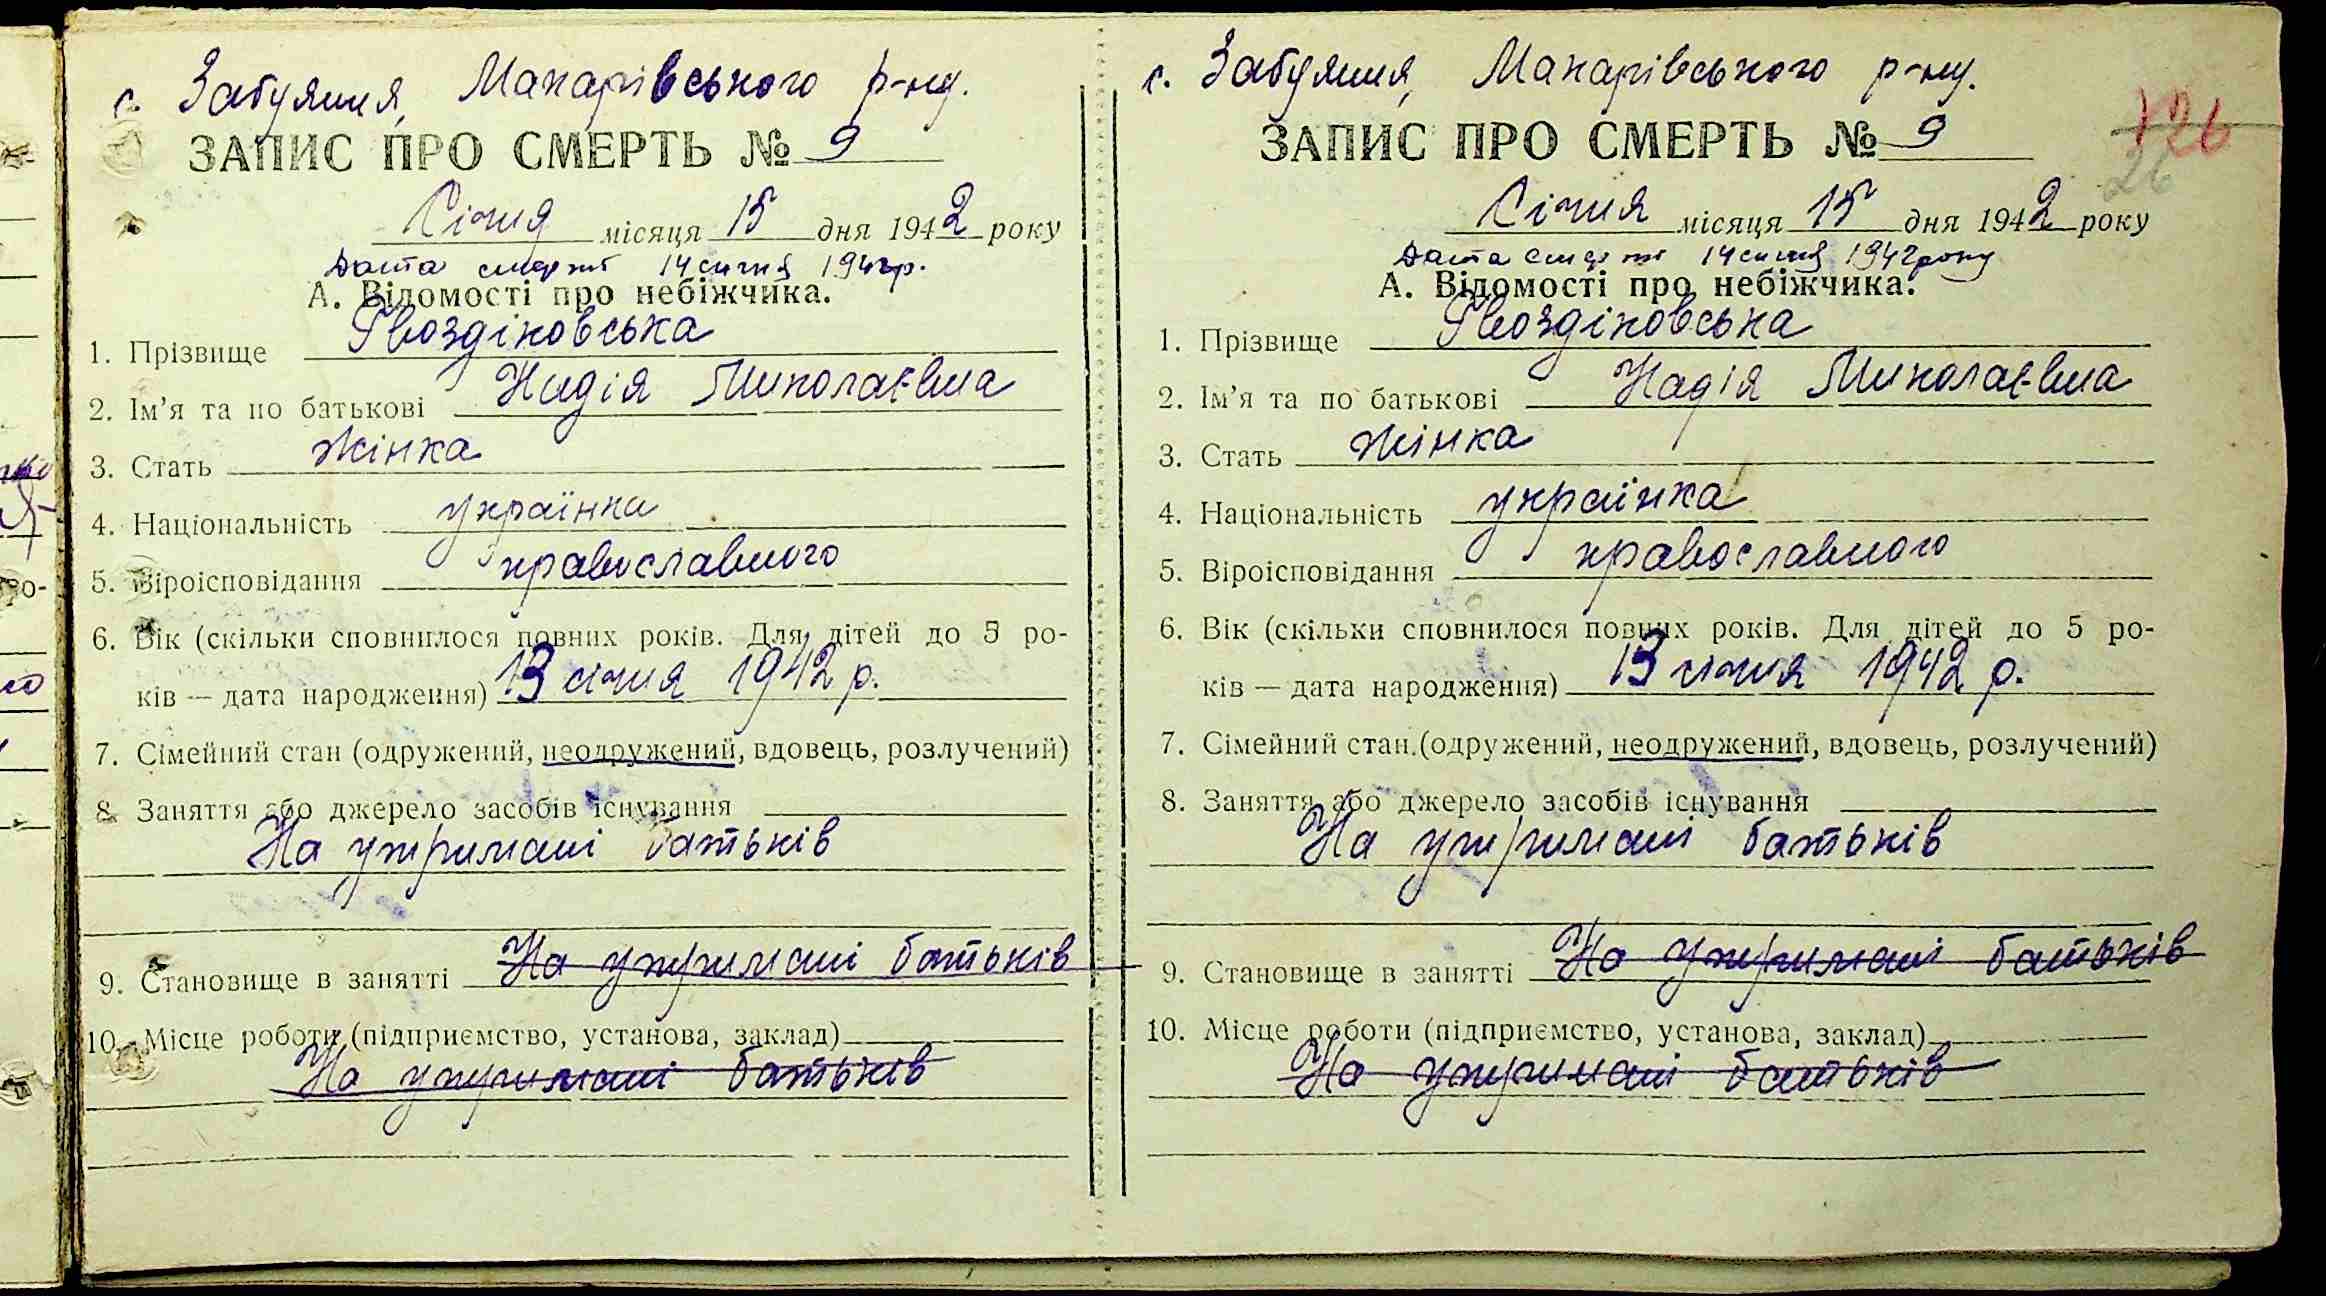 с. Забуяння, Макарівського р-ну.
ЗАПИС ПРО СМЕРТЬ № 9
Січня місяця 15 дня 1942 року
Дата смерти 14 січня 1942р.
А. Відомості про небіжчика.
1. Прізвище Гвоздіковська
2. Ім’я та по батькові Надія Миколаєвна
3. Стать жінка
4. Національність українка
5. Віроісповідання православного
6. Вік (скільки сповнилося повних років. Для дітей до 5 ро-
ків — дата народження) 13 січня 1942 р.
7. Сімейний стан (одружений, неодружений, вдовець, розлучений)
8. Заняття або джерело засобів існування
На утримані батьків
9. Становище в занятті На утримані батьків
10. Місце роботи (підприємство, установа, заклад)
На утримані батьків
с. Забуяння, Макарівського р-ну.
126
ЗАПИС ПРО СМЕРТЬ № 9
26
Січня місяця 15 дня 1942 року
Дата смерти 14 січня 1942 року
А. Відомості про небіжчика.
1. Прізвище Гвоздіковська
2. Ім’я та по батькові Надія Миколаєвна
3. Стать жінка
4. Національність українка
5. Віроісповідання православного
6. Вік (скільки сповнилося повних років. Для дітей до 5 ро-
ків — дата народження) 13 січня 1942 р.
7. Сімейний стан (одружений, неодружений, вдовець, розлучений)
8. Заняття або джерело засобів існування
На утримані батьків
9. Становище в занятті На утримані батьків
10. Місце роботи (підприємство, установа, заклад)
На утримані батьків